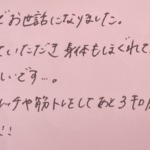 でお世話になりました。
ていただき身体もほぐれて
しいです…。
レッチや筋トレをしてあと3キロ
!!